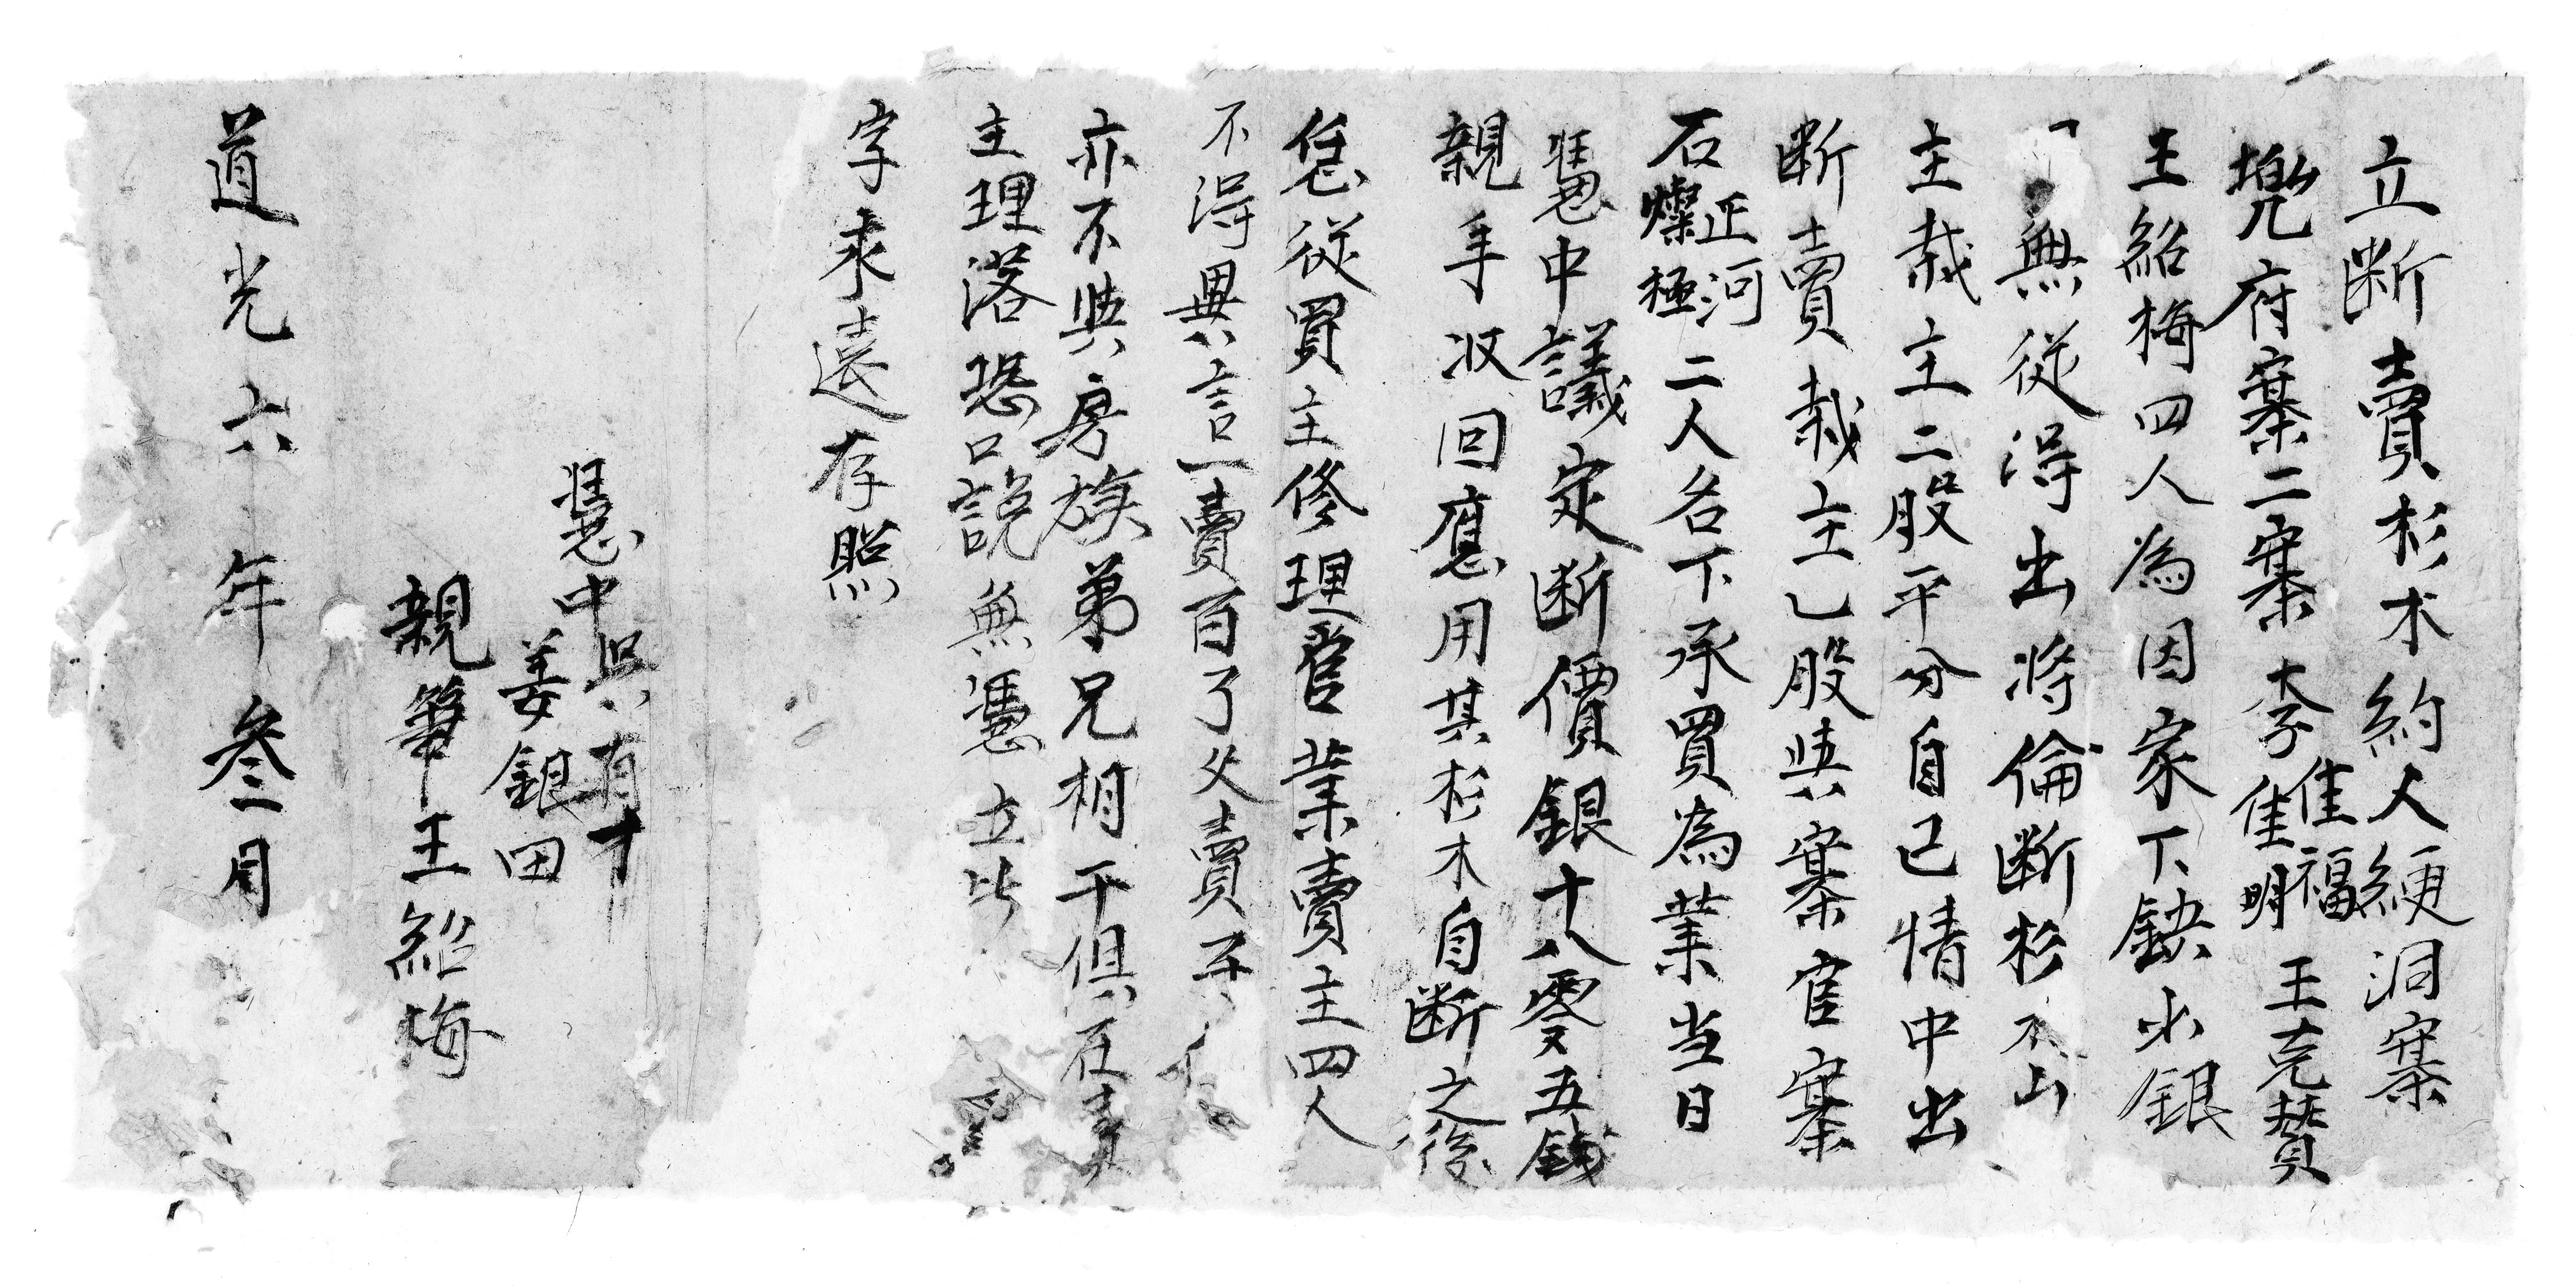 立断賣杉木約人綆洞寨
塊府寨二寨李佳福佳明王克賛
王紹梅四人為因家下缺少銀
無從得出将倫断杉木山
主栽主二股平分自己情中出
断賣栽主乚股與寨官寨
石正河燦極二人名下承買為業当日
憑中議定断價銀十八零五錢
親手收回應用其杉木自断之後
恁從買主修理管業賣主四人
不得異言一賣百了父賣子
亦不與房族弟兄相干俱在賣
主理落恐口說無憑立此
字永遠存照
憑中吳有才
姜銀田
親筆王紹梅
道光六年叁月